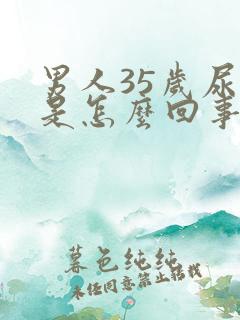 男人35歲尿
是怎麼回事
暮色纯纯
未经同意禁止转载